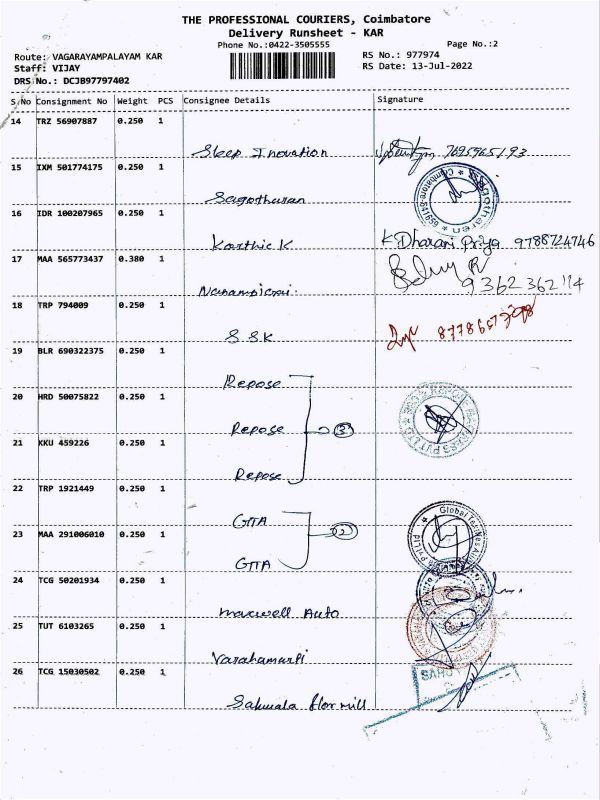 THE PROFESSIONAL COURIERS, Coimbatore
Delivery Runsheet - KAR
Phone No.:0422-3505555 Page No.:2
Route: VAGARAYAMPALAYAM KAR RS No.: 977974
Staff: VIJAY RS Date: 13-Jul-2022
DRS No.: DCJB97797402
S/No Consignment No Weight PCS Consignee Details Signature
14 TRZ 56907887 0.250 1
Sleep Inovation 7695965193
15 IXM 501774175 0.250 1
Sagotharan
16 IDR 100207965 0.250 1
Karthic K K Dharani Priya 9788724746
17 MAA 565773437 0.380 1
9362362114
18 TRP 794009 0.250 1
S S K
19 BLR 690322375 0.250 1
Repose
20 HRD 50075822 0.250 1
Repose 3
21 KKU 459226 0.250 1
Repose
22 TRP 1921449 0.250 1
GTTA
23 MAA 291006010 0.250 1
2
GTTA
24 TCG 50201934 0.250 1
Maxwell Auto
25 TUT 6103265 0.250 1
Varahamurti
26 TCG 15030502 0.250 1
flor mill